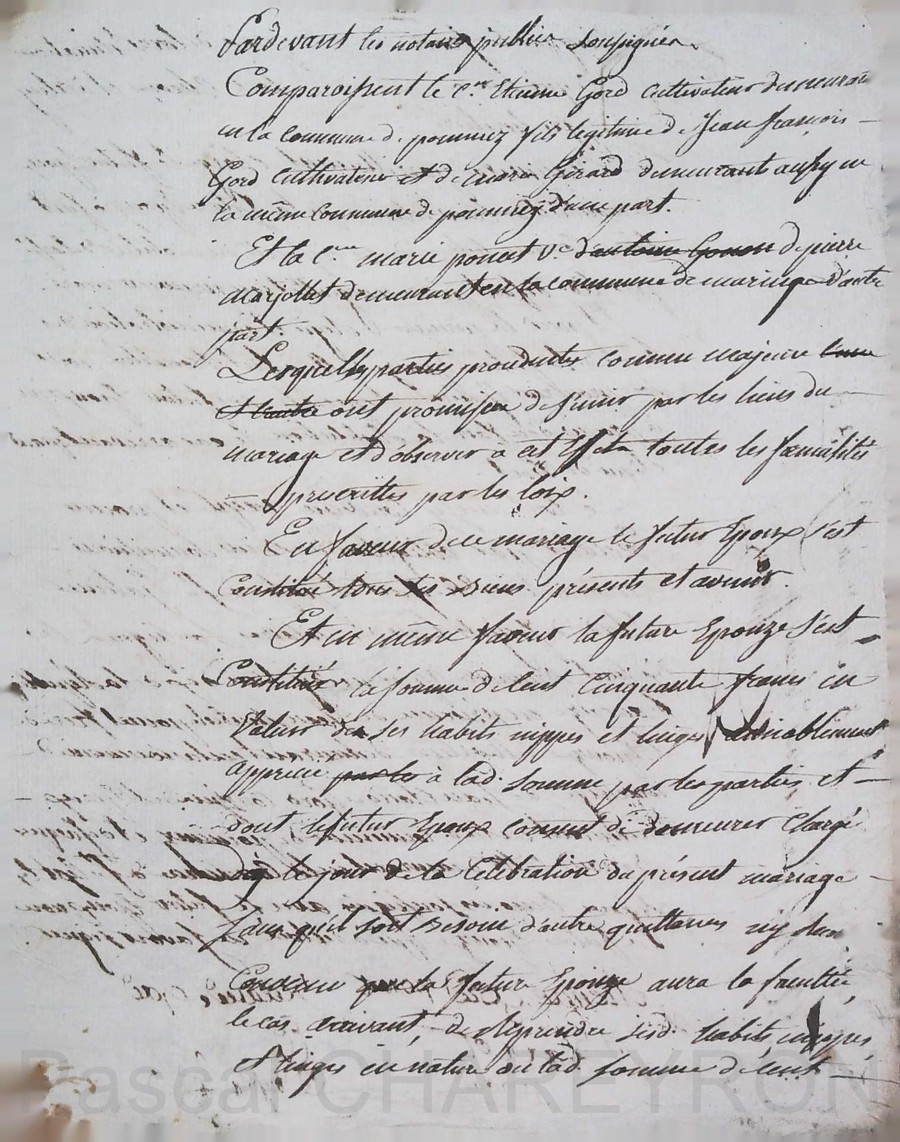 Pardevant les notaires publics soussignés
Comparoissent le c.en Etienne Gord cultivateur demeurant
en la commune de pommiez fils legitime de Jean françois
Gord cultivateur et de marie Girard demeurant aussy en
la même commune de d'une part.
Et la c.enne marie poncet v.e d'antoine de pierre
marjollet demeurant en la commune de maringe d'autre
part.
Lesquelles parties procedantes comme majeure l'une
et l'autre ont promis de s'unir par les liens du
mariage et d'observer a cet effet toutes les formalités
prescrittes par les loix.
En faveur de ce mariage le futur Epoux s'est
Constitué tous ses Biens présents et avenir.
Et en même faveur la future Epouze s'est
Constitué la somme de Cent Cinquante francs en
Valeur de ses habits nippes et linges amiablement
apprecié par les à lad. Somme par les parties et
dont le futur Epoux consent de demeurer Chargé
dès le jour de la Célébration du présent mariage
sans qu'il soit Besoin d'autre quittance ny
la future Epouze aura la faculté,
le cas arrivant, de Reprendre sesd. habits nippes
et linges en nature ou lad. somme de Cent
Pascal CHAREYRON